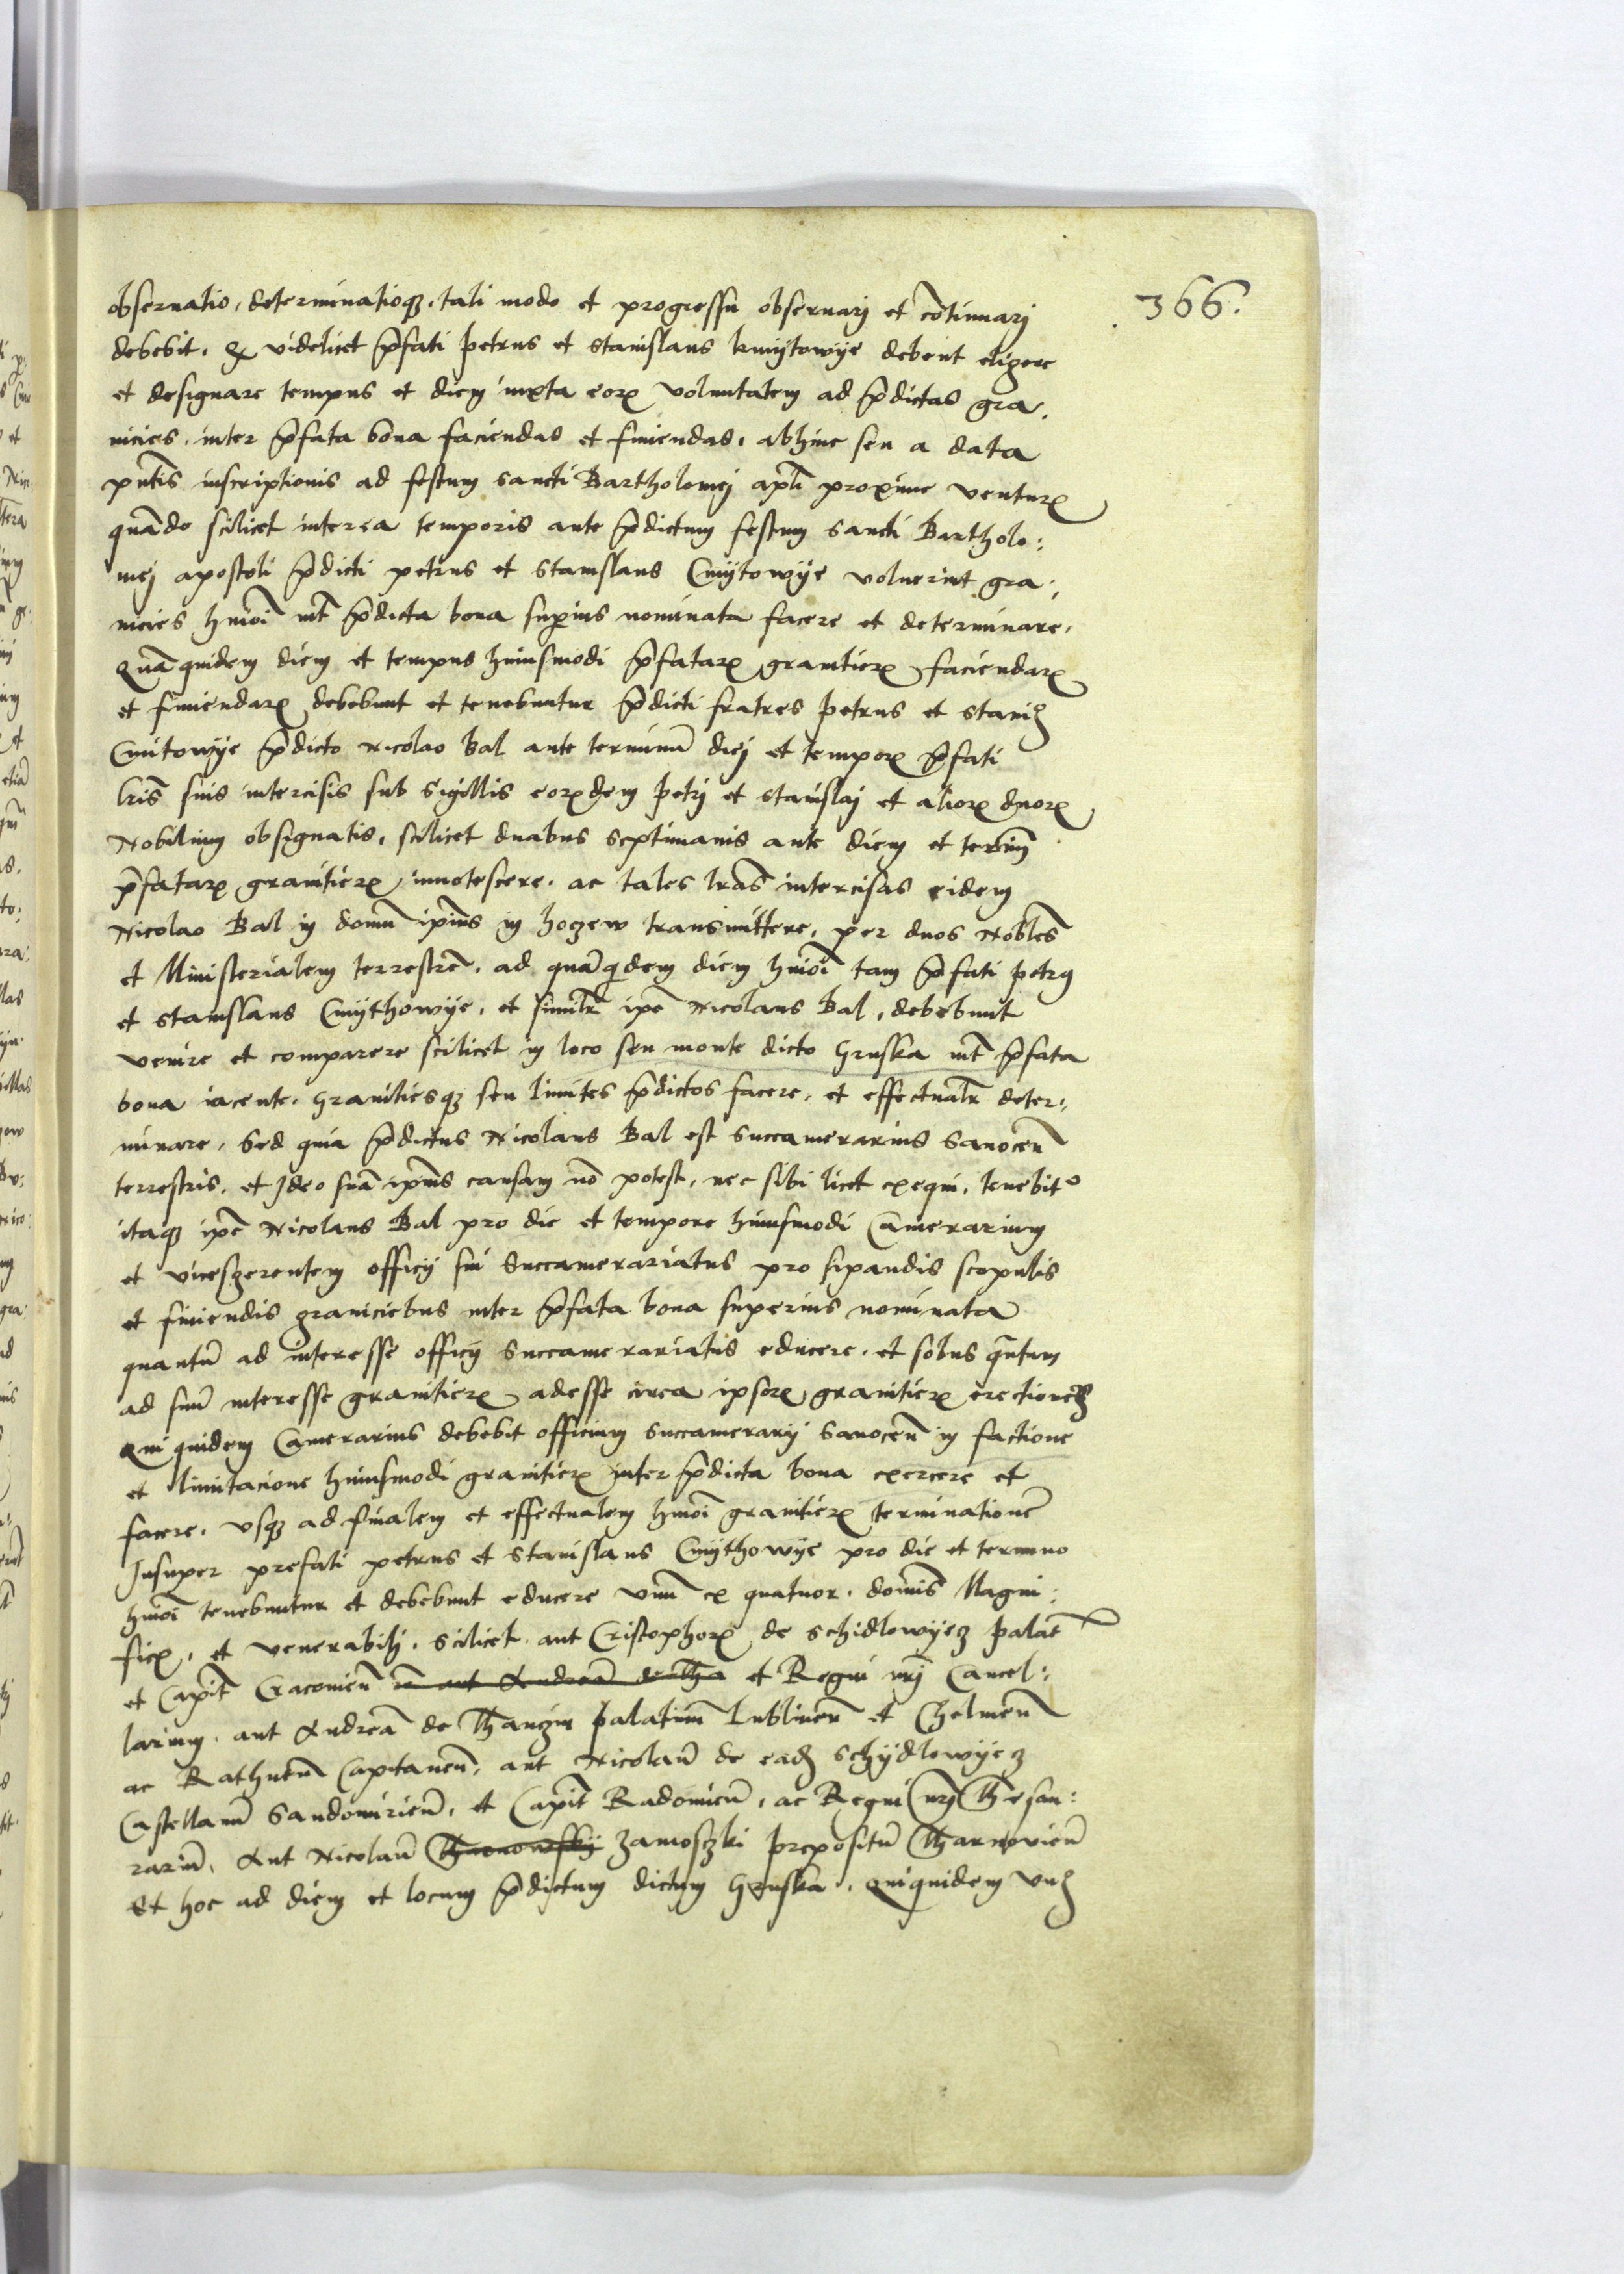 366.
obseruatio, determinatioq₃, tali modo et progressu obseruarj et cōtinuarj
debebit, qꝫ videlicet p̄fati petrus et stanislaus kmÿtowÿe debent eligere
et designare tempus et diem iuxta eoꝝ voluntatem ad p̄dictas gra,
nicies, inter p̄fata bona faciendas et finiendas, abhinc seu a data
pn̄tis inscriptionis ad festum sancti Bartholomej apl̄i proxime ventuꝝ
quādo scilicet interea temporis ante p̄dictum festum sancti Bartholo:
mej apostoli p̄dicti petrus et stanislaus CmÿtowÿE voluerint gra:
nicies hmōi int̄ p̄dicta bona supius nominata facere et determinare,
Quā quidem diem et tempus huiusmodi p̄fataꝝ granitieꝝ faciendaꝝ
et finiendaꝝ debebunt et tenebuntur p̄dicti fratres petrus et staniꝫ
Cmitowÿe p̄dicto Nicolao Bal ante terminū diej et tempoꝝ p̄fati
lr̄is suis intercisis sub sigillis eoꝝdem petrj et stanislaj et alioꝝ duoꝝ
Nobilium obsignatis, scilicet duabus septimanis ante diem et termī
p̄fataꝝ granitieꝝ innotescere, ac tales lrās intercisas eidem
Nicolao Bal in domū ipīus in hoczew transmittere, per duos Nobles̄
et Ministerialem terrestrē, ad quā qidem diem hmōi tam p̄fati petrꝰ
et stanislaus Cmÿthowÿe, et similr̄ ipē Nicolaus Bal, debebunt
venire et comparere scilicet in loco seu monte dicto Gruska int̄ p̄fata
bona iacente, Granitiesq₃ seu limites p̄dictos facere, et effectualr̄ deter:
minare, Sed quia p̄dictus Nicolaus Bal est Succamerarius Sanoceñ
terrestris, et Ideo suā ipīus causam nō potest, nec sibi licet exequi, tenebitᵒ
itaq₃ ipē Nicolaus Bal pro die et tempore huiusmodi Camerarium
et vicesgerentem officÿ sui Succamerariatus pro sipandis scopulis
et finiendis graniciebus inter p̄fata bona superius nominata
quantū ad interesse officÿ Succamerariatus educere, et solus qn̄tum
ad suū interesse granitieꝝ adesse circa ipsoꝝ granitieꝝ erectioneꝫ
Qui quidem Camerarius debebit officium Succamerarÿ Sanoceñ in factione
et limitacione huiusmodi granitieꝝ inter p̄dicta bona exercere et
facere, vsq₃ ad finalem et effectualem hmōi granitieꝝ terminationē
Insuper prefati petrus et stanislaus Cmÿthowÿe pro die et termino
hmōi tenebuntur et debebunt educere vnū ex quatuor, domīs Magni:
ficꝝ, et venerabilj, scilicet aut Cristophoꝝ de Schidlowyecz palat̄
et Capit̄ Cracouieñ et Regni nrj̄ Cancel:
larium, aut Andreā de Thanczin palatinū Lublineñ et Chelmeñ
ac Rathneñ Capitaneū, aut Nicolaū de eadꝫ Schÿdlowyecz
Castellanū Sandomirieñ, et Capit̄ Radomieñ, ac Regni nrj̄ Thesau:
rariū, Aut Nicolaū Zamosczki prepositū Tharnovieñ
Et hoc ad diem et locum p̄dictum dictum Gruska, Qui quidem vnꝫ